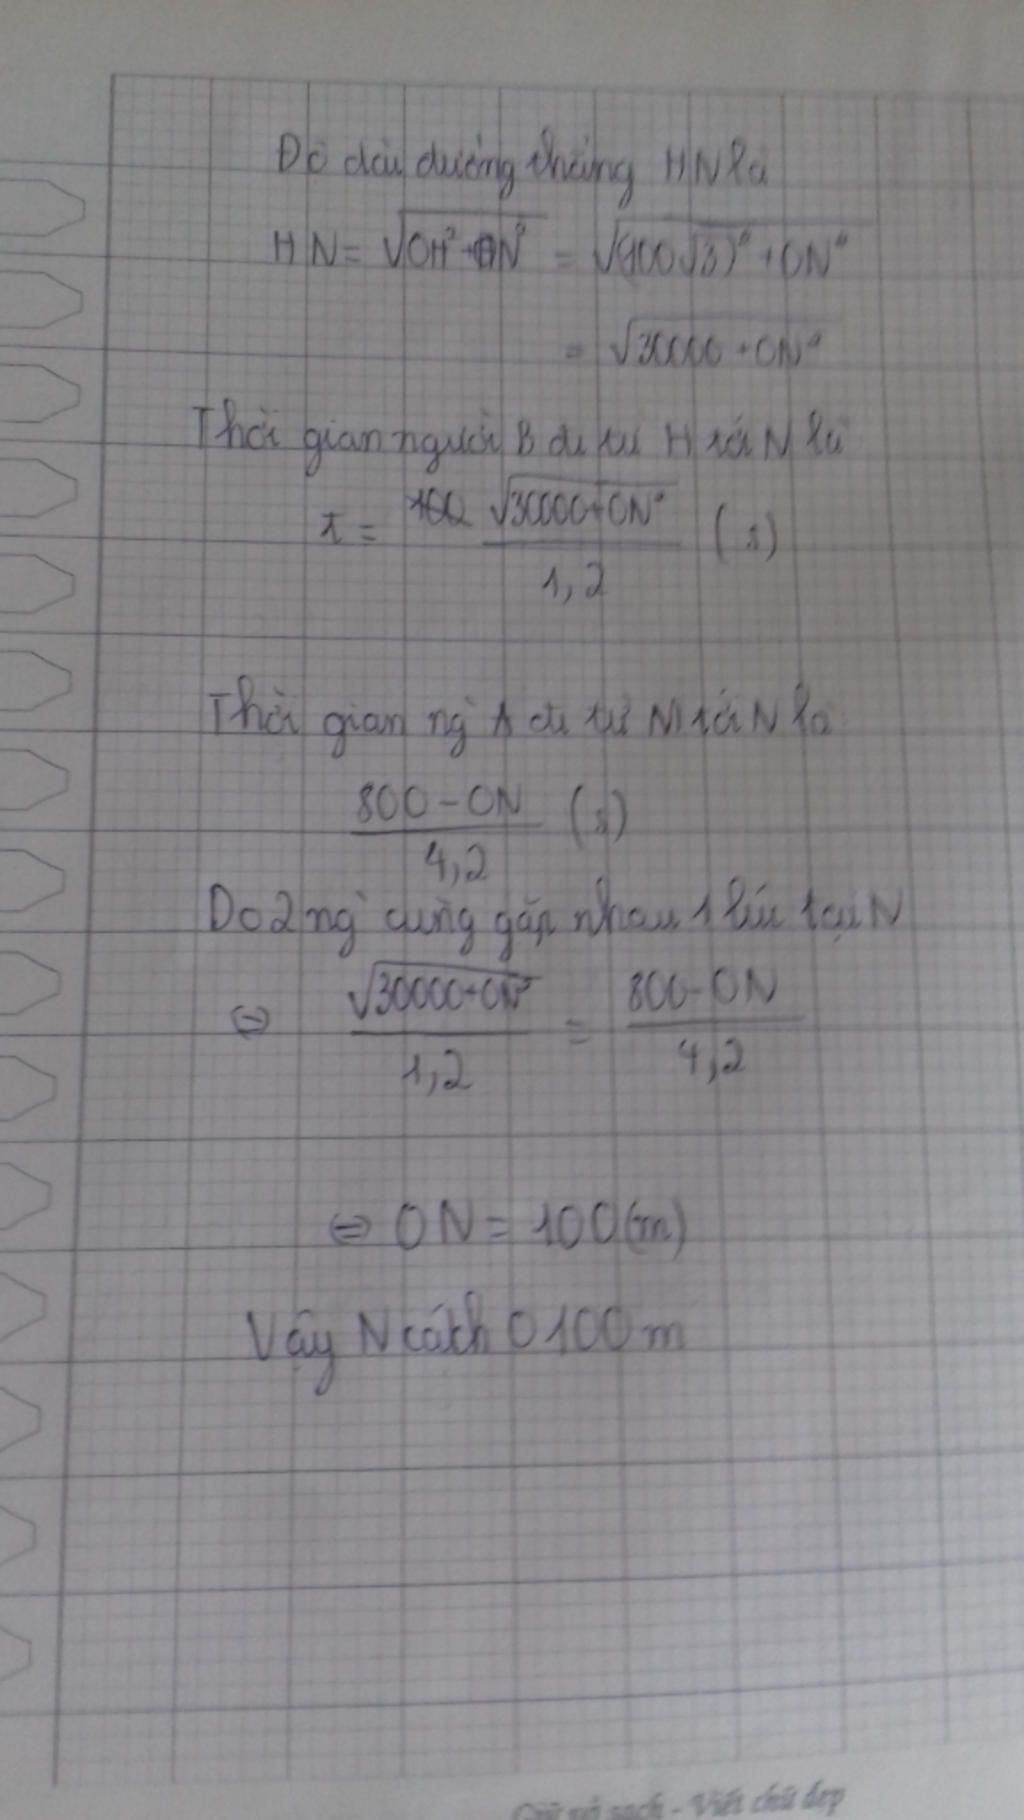 Độ dài đường thẳng HN là
HN = √(OH² + ON²) = √((100√3)² + ON²)
= √(30000 + ON²)
Thời gian người B đi từ H tới N là
t = √(30000 + ON²) / 1,2 (s)
Thời gian ng' A đi từ M tới N là
(800 - ON) / 4,2 (s)
Do 2 ng' cùng gặp nhau 1 lúc tại N
⇔ √(30000 + ON²) / 1,2 = (800 - ON) / 4,2
⇔ ON = 100 (m)
Vậy N cách O 100 m
Giữ vở sạch - Viết chữ đẹp